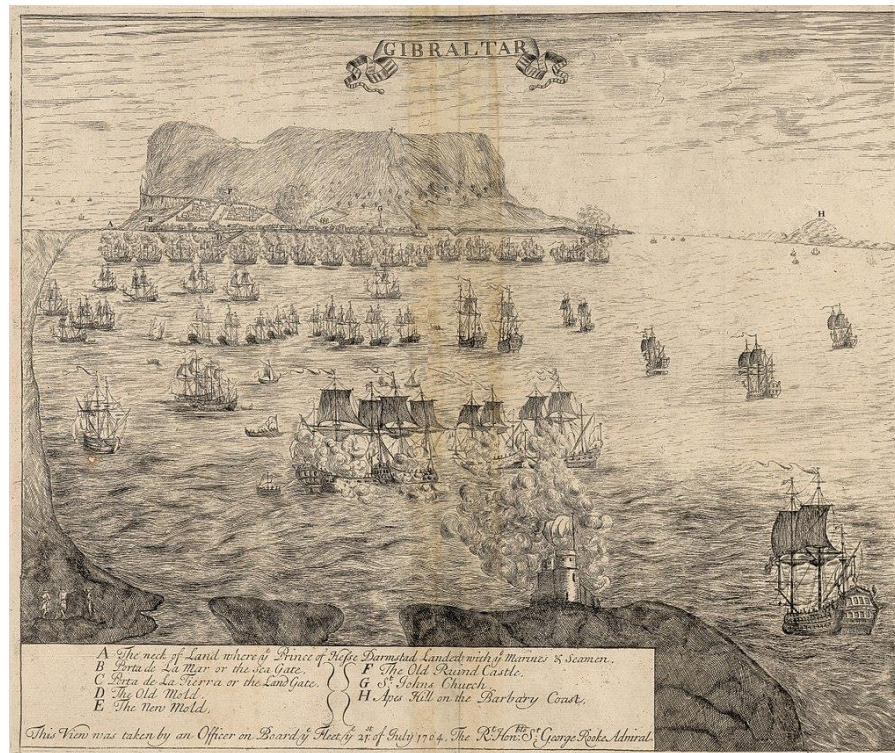 GIBRALTAR
H
F
G
A
B
A The neck of Land where yͤ Prince of Hesse Darmstad Landed with yͤ Marines & Seamen.
B Porta de La Mar or the Sea Gate.
C Porta de La Tierra or the Land Gate.
D The Old Mold.
E The New Mold.
F The Old Ruind Castle.
G Sᵗ Johns Church
H Apes Hill on the Barbary Coast.
This View was taken by an Officer on Board yͤ Fleet, yͤ 21ˢᵗ of July 1704. The Rᵗ Honᵇˡᵉ Sʳ George Rooke Admiral.